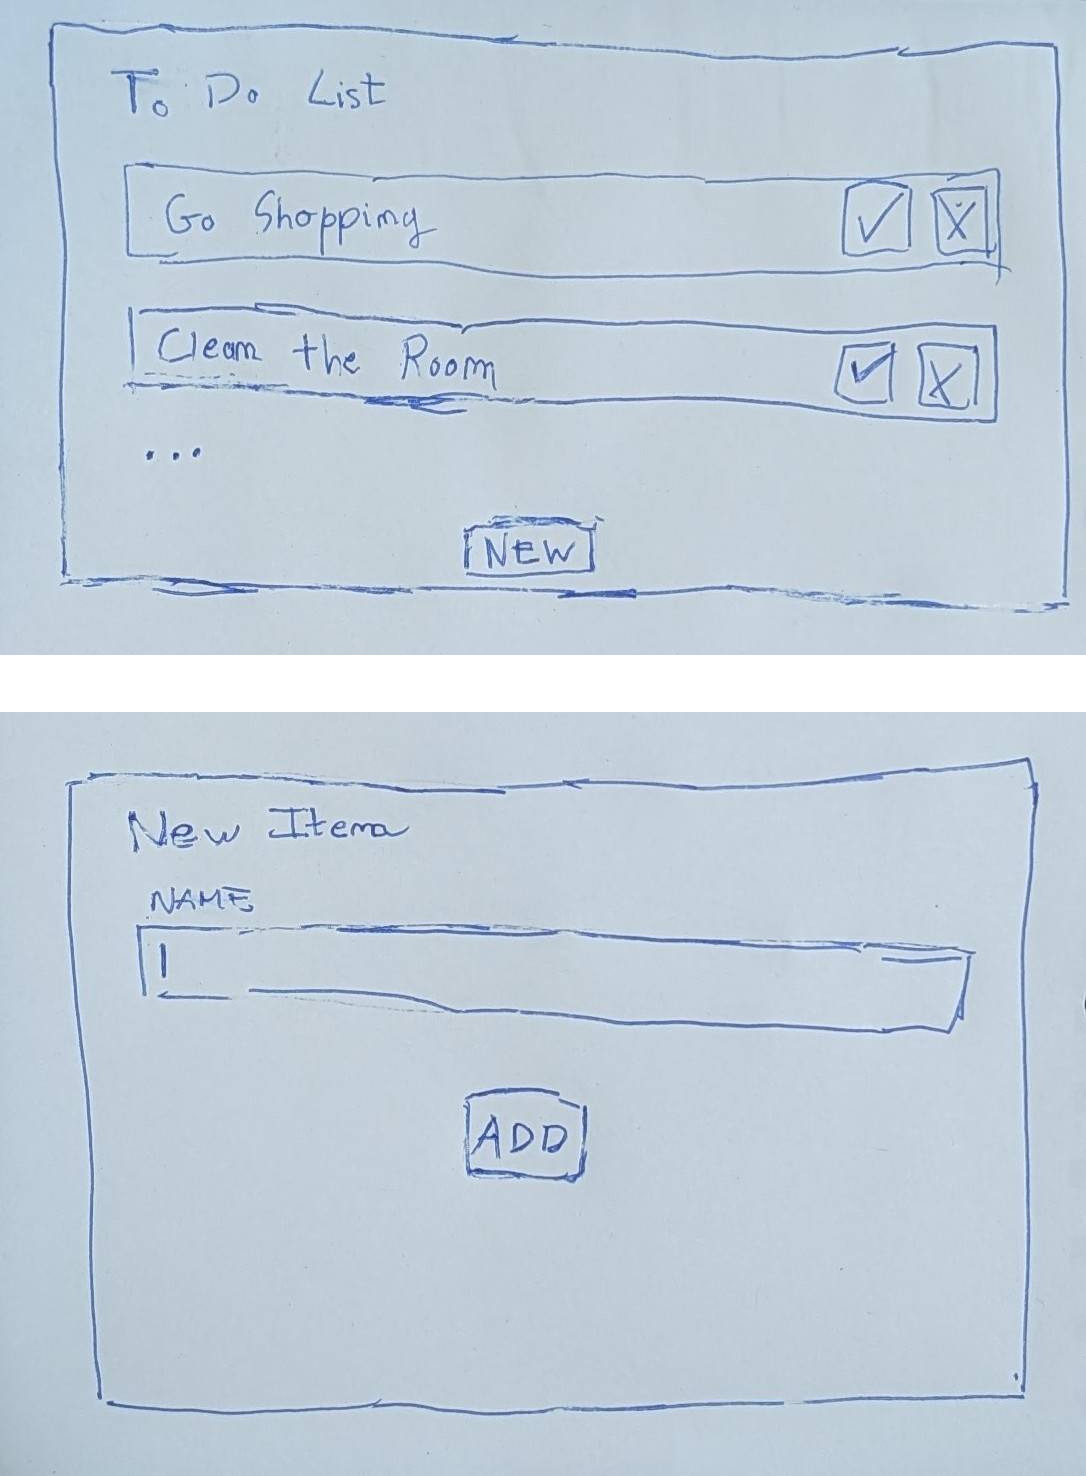 To Do List
Go Shopping ✓ X
Clean the Room ✓ X
...
NEW
New Item
NAME
ADD